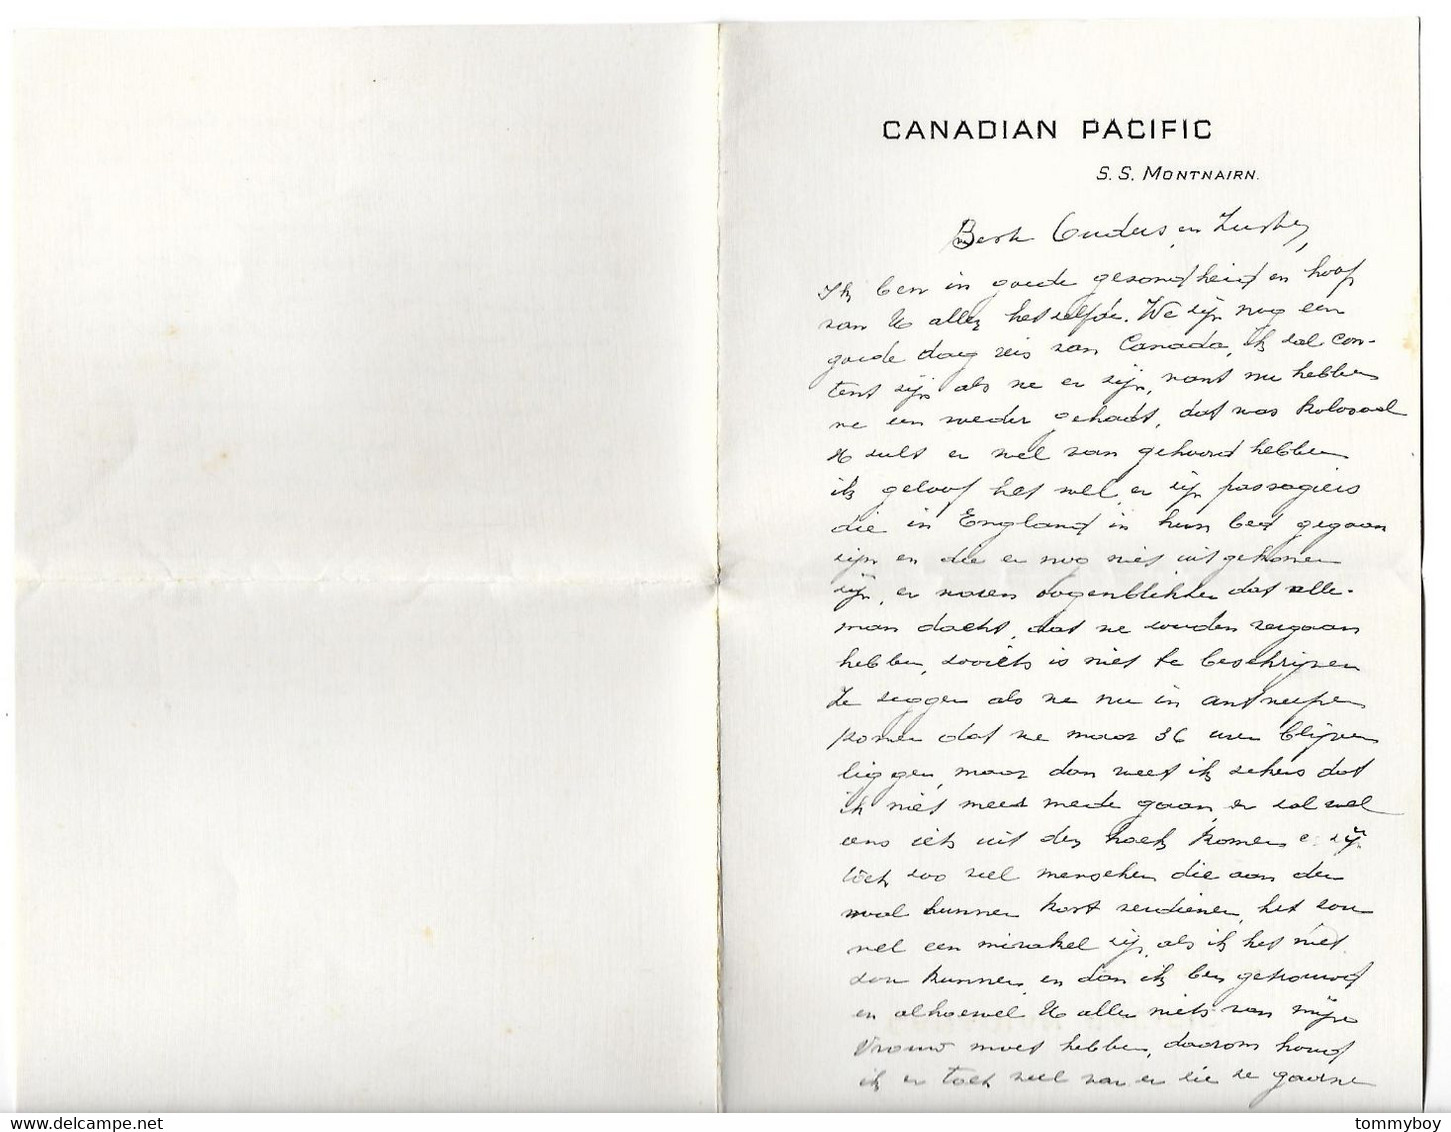 CANADIAN PACIFIC
S. S. MONTNAIRN.
Beste Ouders en Zuster,
Ik ben in goede gezondheid en hoop
van U allen hetzelfde. We zijn nog een
goede dag reis van Canada, ik zal con-
tent zijn als we er zijn, want nu hebben
we een weder gehadt, dat was kolosaal
U zult er wel van gehoord hebben
ik geloof het wel, er zijn passagiers
die in England in hun bed gegaan
zijn en die er nog niet uit gekomen
zijn, er waren oogenblikken dat alle-
man dacht, dat we zouden vergaan
hebben, zooiets is niet te beschrijven
Ze zeggen als we nu in antwerpen
komen dat we maar 36 uren blijven
liggen, maar dan weet ik zekers dat
ik niet meer mede gaan, er zal wel
eens iets uit den hoek komen er zijn
toch zoo veel menschen die aan den
wal kunnen kost verdienen, het zou
wel een mirakel zijn als ik het niet
zou kunnen, en dan ik ben getrouwd
en alhoewel U allen niets van mijne
Vrouw moet hebben, daarom houd
ik er toch veel van er zie ze gaarne
tommyboy